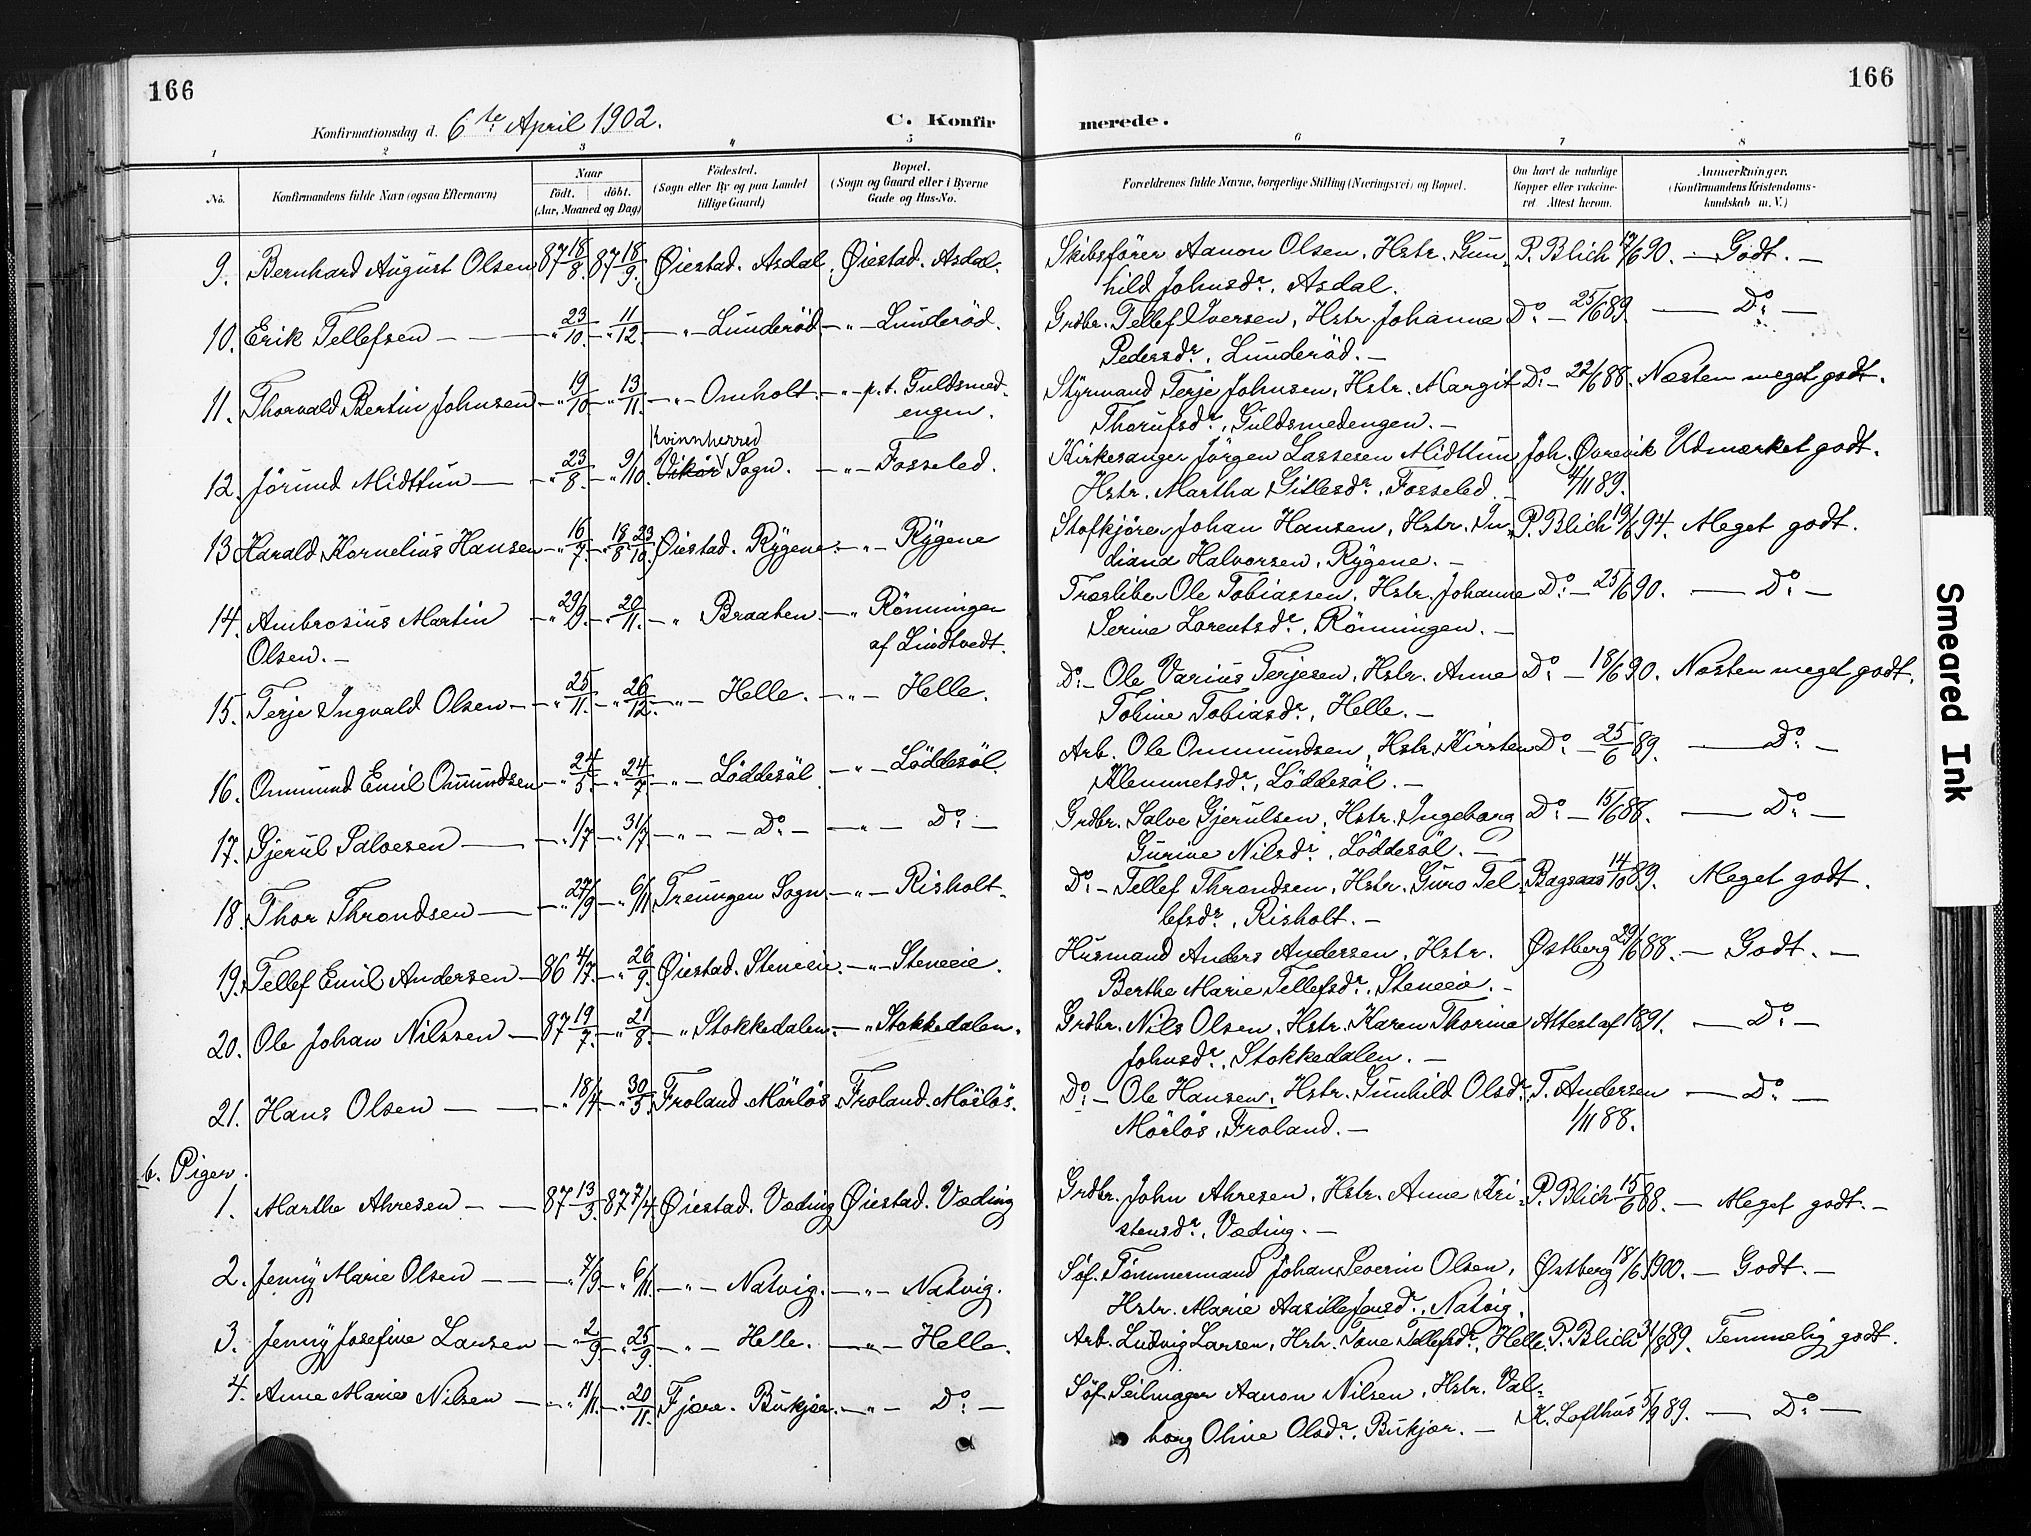 166
166
Konfirmationsdag d. 6te April 1902.
C. Konfirmerede.
1 2 3 4 5 6 7 8
No.
Konfirmandens fulde Navn (ogsaa Efternavn)
Naar
født. døbt.
(Aar, Maaned og Dag)
Fødested.
(Sogn eller By og paa Landet
tillige Gaard)
Bopæl.
(Sogn og Gaard eller i Byerne
Gade og Hus-No.
Forældrenes fulde Navne, borgerlige Stilling (Næringsvei) og Bopæl.
Om havt de naturlige
Kopper eller vakcine-
ret. Attest herom.
Anmærkninger.
(Konfirmandens Kristendoms-
kundskab m. V.)
9. Bernhard August Olsen 87 18/8. 87 18/9. Øiestad. Asdal. Øiestad. Asdal. Skibsfører Aanon Olsen, Hstr. Gun- P. Blich 17/6 90. — Godt. —
hild Johnsdr., Asdal.
10. Erik Tellefsen — — „ 23/10. — „ 11/12. — „ Lunderöd — „ — Lunderöd. Grdbr. Tellef Iversen, Hstr. Johanne Do — 25/6 89. — Do —
Pedersdr., Lunderöd. —
11. Thorvald Bertin Johnsen — „ 19/10 — „ 13/11. — „ Omholt. — „ p.t. Guldsmed- Styrmand Terje Johnsen, Hstr. Margit Do — 22/6 88. Næsten meget godt.
engen. Thorufsdr., Guldsmedengen. —
Kvinnherred
12. Jörund Midttun — „ 23/8. — „ 9/10. Vikör Sogn. — „ — Fosseled. Kirkesanger Jörgen Lassesen Midttun Joh. Øvrevik Udmærket godt.
Hstr. Martha Gitlesdr., Fosseled. — 4/11 89.
13 Harald Kornelius Hansen — „ 16/7. — „ 18/8 23/10. Øiestad. Rygene. — „ — Rygene Stofkjörer Johan Hansen, Hstr. Ju- P. Blich 19/6 94. Meget godt.
liana Halvorsen, Rygene. —
14. Ambrosius Martin — „ 29/9. — „ 20/11. — „ Braaten — „ Rönningen Træsliber Ole Tobiassen, Hstr. Johanne Do — 25/6 90. — Do —
Olsen. — af Lindtvedt. Serine Lorentsdr., Rönningen. —
15. Terje Ingvald Olsen — „ 25/11. — „ 26/12. — „ — Helle. — „ — Helle. Do — Ole Varius Terjesen, Hstr. Anne Do — 18/6 90. Næsten meget godt.
Tobine Tobiasdr., Helle. —
16. Ommund Emil Ommundsen — „ 24/5. — „ 24/7 — „ — Löddesöl — „ — Löddesöl. Arb. Ole Ommundsen, Hstr. Kirsten Do — 25/6 89. — Do —
Klemmetsdr., Löddesöl. —
17. Gjerul Salvesen — „ 1/7 — „ 31/7. — „ — — Do — — „ — Do — Grdbr. Salve Gjerulsen, Hstr. Ingeborg Do — 15/6 88. — Do —
Gurine Nilsdr., Löddesöl. —
18. Thor Throndsen — „ 27/9 — „ 6/11. Treungen Sogn. — „ — Risholt. Do — Tellef Throndsen, Hstr. Guro Tel- Bagsaas 14/10 89. Meget godt.
lefsdr., Risholt. —
19. Tellef Emil Andersen — 86 4/7. — „ 26/9. Øiestad. Steneie. — „ — Steneie. Husmand Anders Andersen, Hstr. Østberg 29/6 88. — Godt. —
Berthe Marie Tellefsdr., Steneie. —
20. Ole Johan Nilssen — 87 19/7. — „ 21/8. — „ Stokkedalen. — „ Stokkedalen. Grdbr. Nils Olsen, Hstr. Karen Thorine Attest af 1891. — Do —
Johnsdr., Stokkedalen. —
21. Hans Olsen — — „ 18/4 — „ 30/5. Froland. Mörlös. Froland. Mörlös. Do — Ole Hansen, Hstr. Gunhild Olsdr. T. Andersen — Do —
Mörlös, Froland. — 1/11 88.
b. Piger.
1. Marthe Ahresen — — 87 13/3. 87 7/4. Øiestad. Væding Øiestad. Væding Grdbr. John Ahresen, Hstr. Anne Kri- P. Blich 15/6 88. — Meget godt. —
stensdr., Væding. —
2. Jenny Marie Olsen — — „ 7/9 — „ 6/11. — „ — Natvig. — „ — Natvig. Söf. Tömmermand Johan Severin Olsen, Østberg 18/6 1900. — Godt. —
Hstr. Marie Aasille Jensdr., Natvig.
3. Jenny Josefine Larsen — „ 2/9 — „ 25/9. — „ — Helle. — „ — Helle. Arb. Ludvig Larsen, Hstr. Tone Tellefsdr., Helle. P. Blich 31/8 89. Temmelig godt.
4. Anne Marie Nilsen — — „ 11/11. — „ 20/11. Fjære. Bukjær. — „ — Do — Söf. Seilmager Aanon Nilsen, Hstr. Val- K. Lofthus 5/9 89. — Do —
borg Oline Olsdr., Bukjær. —
Smeared Ink